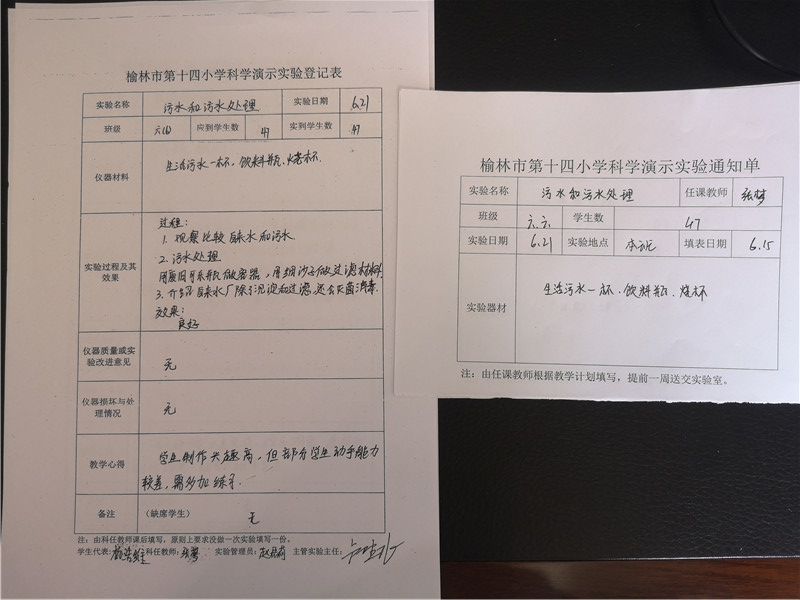 榆林市第十四小学科学演示实验登记表
实验名称 污水和污水处理 实验日期 6.21
班级 应到学生数 47 实到学生数 47
仪器材料 生活污水一杯、饮料瓶、烧杯.
实验过程及其效果
过程:
1. 观察比较自来水和污水
2. 污水处理
用废旧可乐瓶做容器, 用细沙子做过滤材料
3. 介绍自来水厂除了沉淀和过滤还会灭菌消毒.
效果:
良好
仪器质量或实验改进意见 无
仪器损坏与处理情况 无
教学心得 学生制作兴趣高, 但部分学生动手能力
较差, 需多加练习.
备注 (缺席学生) 无
注:由科任教师课后填写,原则上要求没做一次实验填写一份。
学生代表: 科任教师: 实验管理员: 主管实验主任:
榆林市第十四小学科学演示实验通知单
实验名称 污水和污水处理 任课教师 张梦
班级 六.六 学生数 47
实验日期 6.21 实验地点 本班 填表日期 6.15
实验器材 生活污水一杯、饮料瓶、烧杯
注:由任课教师根据教学计划填写,提前一周送交实验室。